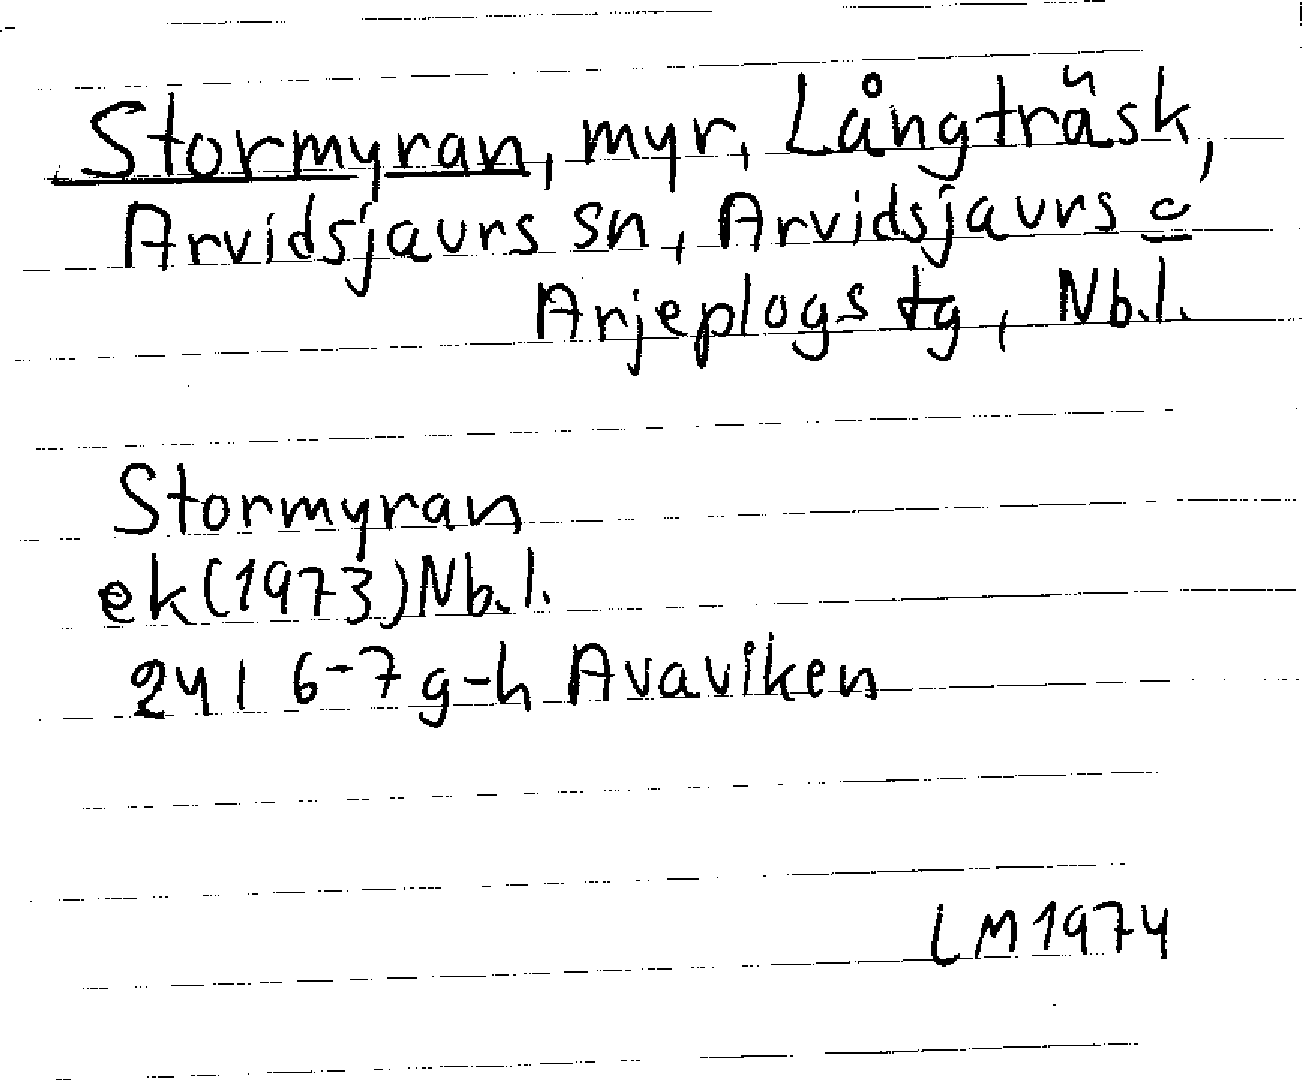 Stormyran, myr, Långträsk,
Arvidsjaurs sn, Arvidsjaurs o
Arjeplogs tg, Nb.l.
Stormyran
ek(1973)Nb.l.
24I 6-7 g-h Avaviken
LM 1974